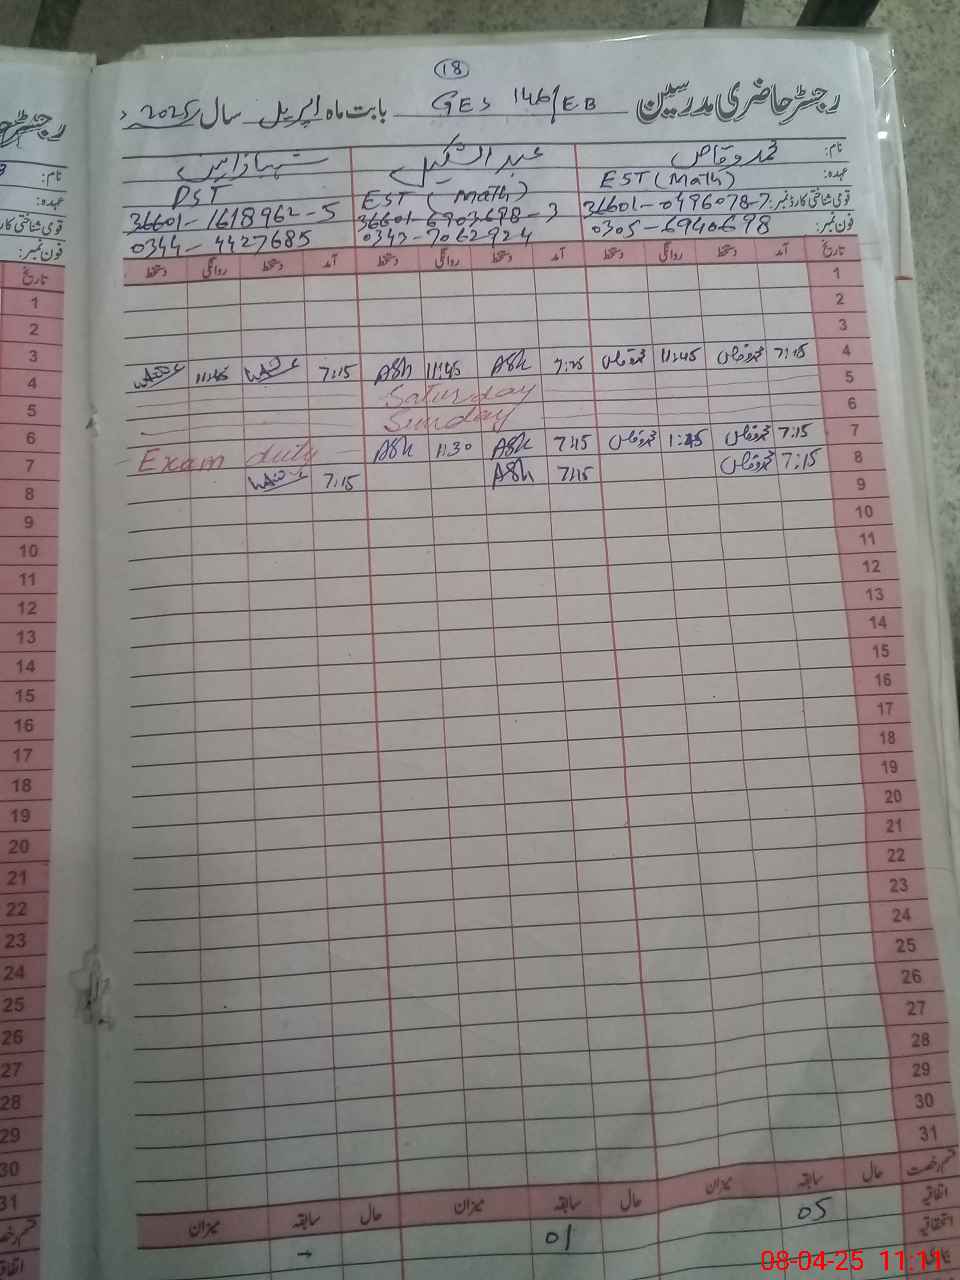 18
رجسٹر حاضری مدرسین GES 146/EB بابت ماہ اپریل سال 2025ء
نام: محمد وقاص عبد الشکیل شہباز
عہدہ: EST (Math) EST (Math) PST
قومی شناختی کارڈ نمبر: 36601-0496078-7 36601-6903698-3 36601-1618962-5
فون نمبر: 0305-6940698 0343-7062924 0344-4427685
تاریخ آمد دستخط روانگی دستخط آمد دستخط روانگی دستخط آمد دستخط روانگی دستخط
1
2
3
4 7:15 محمد وقاص 11:45 محمد وقاص 7:15 ASh 11:45 ASh 7:15 11:45
5 Saturday
6 Sunday
7 7:15 محمد وقاص 1:45 محمد وقاص 7:15 ASh 11:30 ASh Exam duty
8 7:15 محمد وقاص 7:15 ASh 7:15
9
10
11
12
13
14
15
16
17
18
19
20
21
22
23
24
25
26
27
28
29
30
31
قسم رخصت حال سابقہ میزان حال سابقہ میزان حال سابقہ میزان
اتفاقیہ 05 01 -
استحقاقیہ
رجسٹر حا
نام:
عہدہ:
قومی شناختی کار
فون نمبر:
تاریخ
1
2
3
4
5
6
7
8
9
10
11
12
13
14
15
16
17
18
19
20
21
22
23
24
25
26
27
28
29
30
31
قسم رخ
اتفاق
08-04-25 11:11